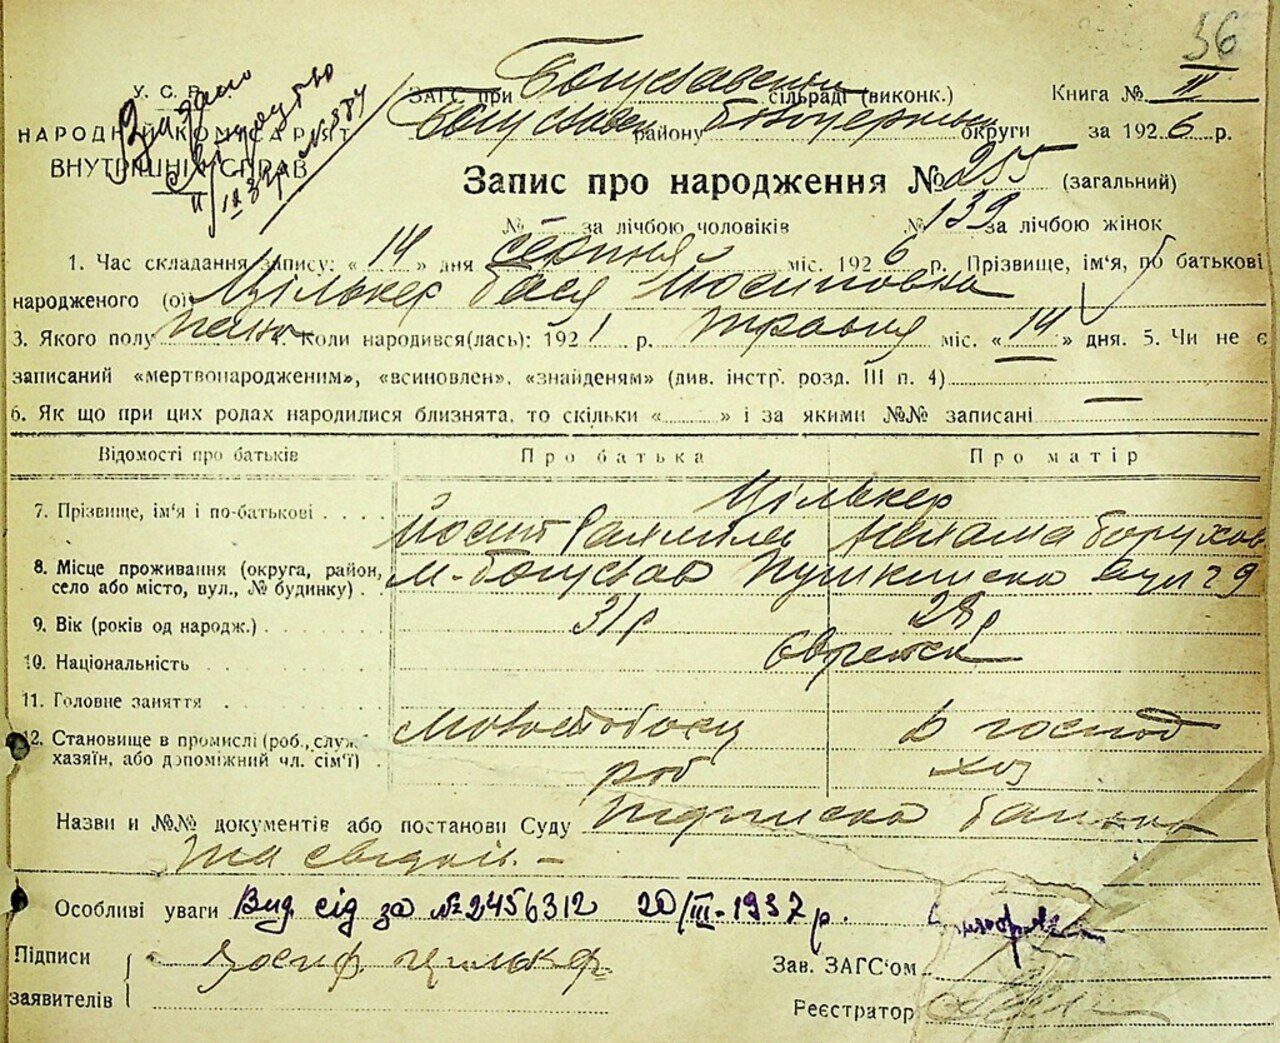 36
У. С. Р.
НАРОДНІЙ КОМІСАРІЯТ
ВНУТРІШНІХ СПРАВ
Видано
свідоцтво
№ 884
ЗАГС при Богуславській сільраді (виконк.) Книга № II
Богуславськ району Білоцерківськ округи за 1926 р.
Запис про народження № 255 (загальний)
№ за лічбою чоловіків № 139 за лічбою жінок
1. Час складання запису: « 14 » дня серпня міс. 1926 р. Прізвище, ім'я, по батькові
народженого (ої) Цількер Бася Йосиповна
3. Якого полу жіноч 4. Коли народився(лась): 1921 р. травня міс. « 14 » дня. 5. Чи не є
записаний «мертвонародженим», «всиновлен», «знайденям» (див. інстр. розд. III п. 4) —
6. Як що при цих родах народилися близнята, то скільки « » і за якими №№ записані
Відомості про батьків Про батька Про матір
7. Прізвище, ім'я і по-батькові Цількер
Йосип Рахміль Нехама Борухов
8. Місце проживання (округа, район, село або місто, вул., № будинку) м. Богуслав Пушкинска вул 29
9. Вік (років од народж.) 31 р 28 р
10. Національність Еврейск
11. Головне заняття
12. Становище в промислі (роб., служ. хазяїн, або допоміжний чл. сім'ї) роб в господ хоз
Назви и №№ документів або постанови Суду Підписка батька
та свідків. –
Особливі уваги Вид. сід за №2456312 20/III-1937 р.
Підписи заявителів Иосиф Цилькер
Зав. ЗАГС'ом
Реєстратор